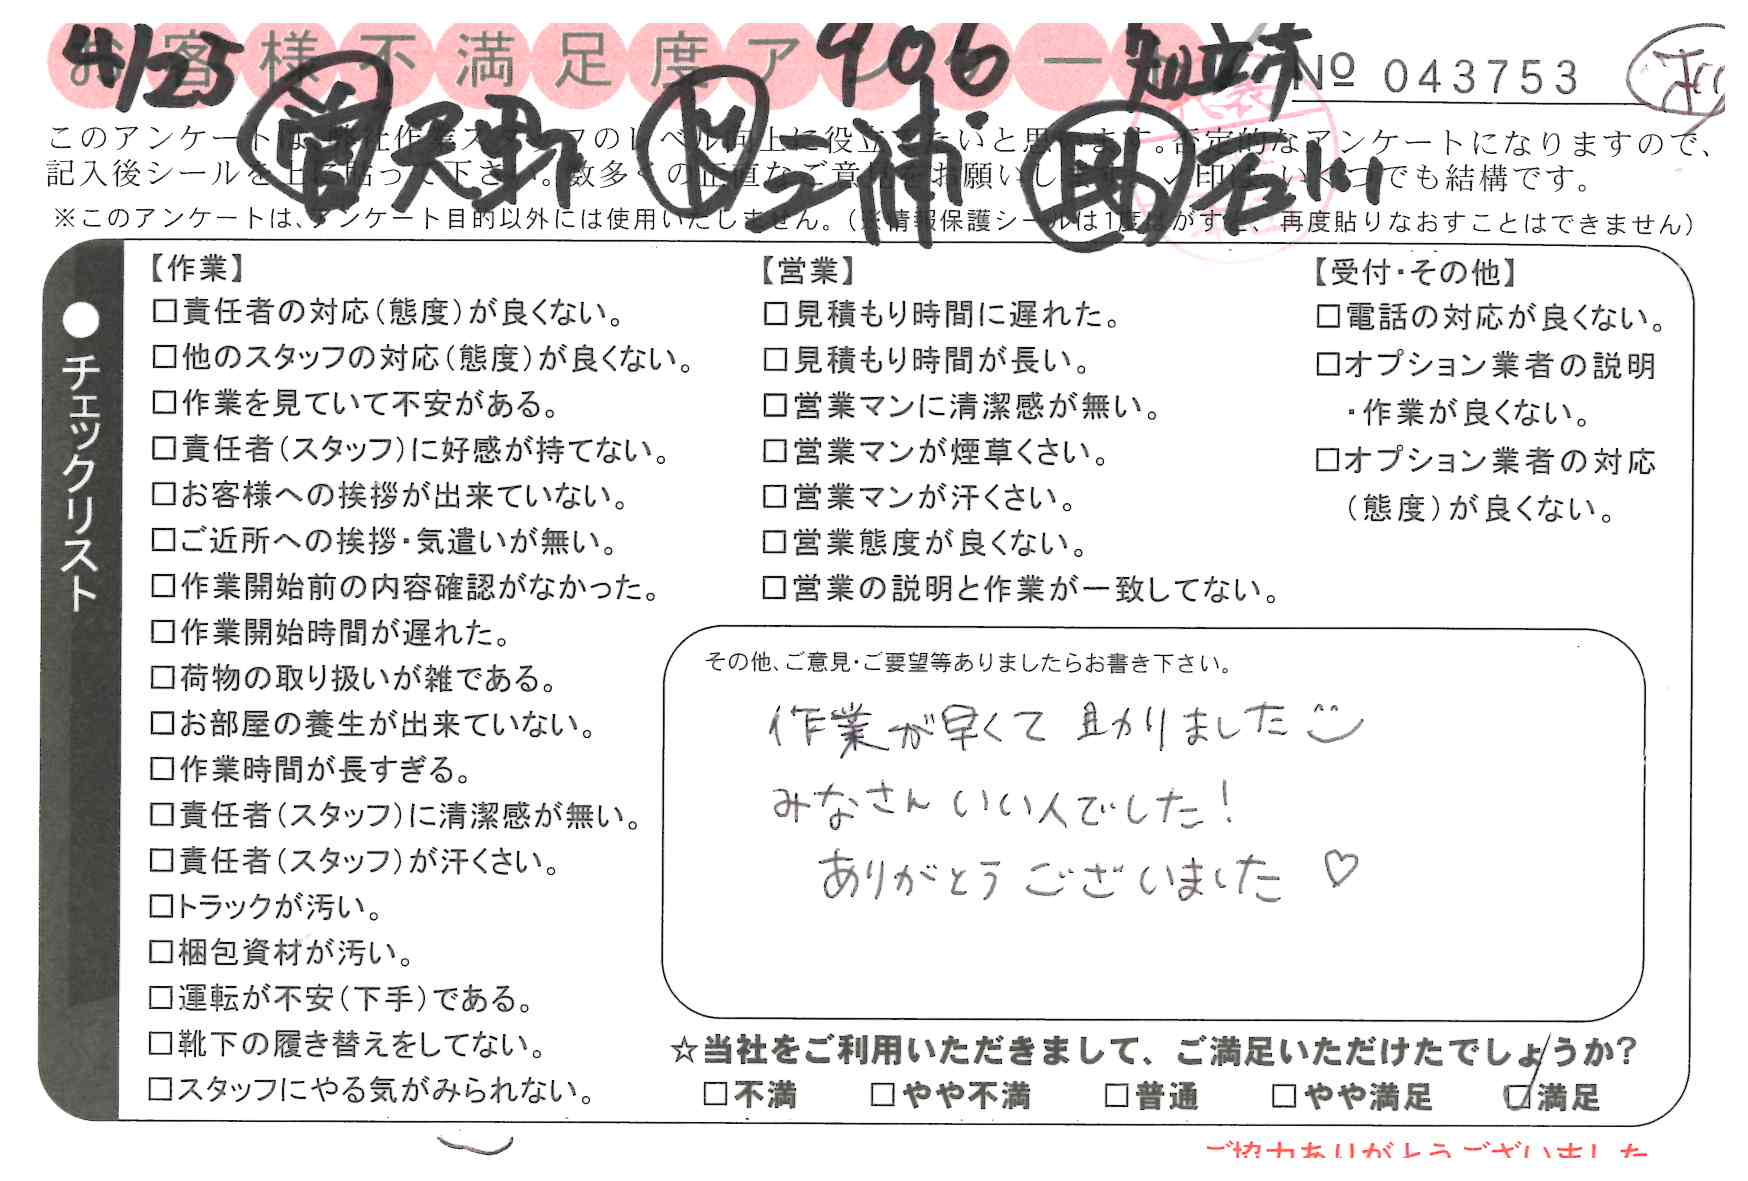 お客様不満足度アンケート
4/25 906 知立市 № 043753
曽 天野 ト 三浦 助 若川
このアンケートは、弊社作業スタッフのレベル向上に役立てたいと思います。否定的なアンケートになりますので、
記入後シールを上に貼って下さい。数多くの正直なご意見をお願いします。レ印は、いくつでも結構です。
※このアンケートは、アンケート目的以外には使用いたしません。(※情報保護シールは1度はがすと、再度貼りなおすことはできません)
●チェックリスト
【作業】
□責任者の対応(態度)が良くない。
□他のスタッフの対応(態度)が良くない。
□作業を見ていて不安がある。
□責任者(スタッフ)に好感が持てない。
□お客様への挨拶が出来ていない。
□ご近所への挨拶・気遣いが無い。
□作業開始前の内容確認がなかった。
□作業開始時間が遅れた。
□荷物の取り扱いが雑である。
□お部屋の養生が出来ていない。
□作業時間が長すぎる。
□責任者(スタッフ)に清潔感が無い。
□責任者(スタッフ)が汗くさい。
□トラックが汚い。
□梱包資材が汚い。
□運転が不安(下手)である。
□靴下の履き替えをしてない。
□スタッフにやる気がみられない。
【営業】
□見積もり時間に遅れた。
□見積もり時間が長い。
□営業マンに清潔感が無い。
□営業マンが煙草くさい。
□営業マンが汗くさい。
□営業態度が良くない。
□営業の説明と作業が一致してない。
【受付・その他】
□電話の対応が良くない。
□オプション業者の説明
・作業が良くない。
□オプション業者の対応
(態度)が良くない。
その他、ご意見・ご要望等ありましたらお書き下さい。
作業が早くて助かりました
みなさんいい人でした!
ありがとうございました♡
☆当社をご利用いただきまして、ご満足いただけたでしょうか?
□不満 □やや不満 □普通 □やや満足 ☑満足
ご協力ありがとうございました